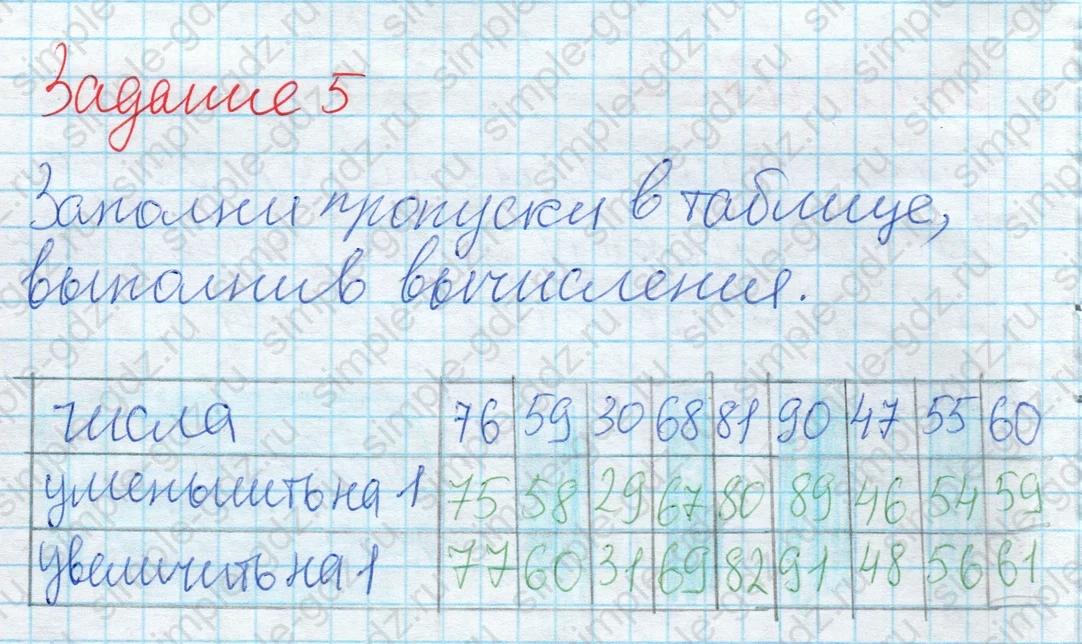 Задание 5
Заполни пропуски в таблице,
выполнив вычисления.
числа 76 59 30 68 81 90 47 55 60
уменьшить на 1 75 58 29 67 80 89 46 54 59
увеличить на 1 77 60 31 69 82 91 48 56 61
simple-gdz.ru